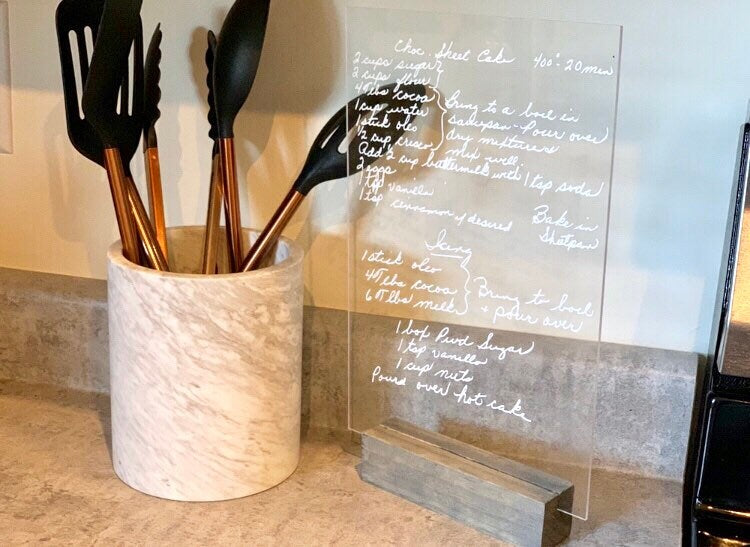 Choc. Sheet Cake 400° - 20 min
2 cups sugar
2 cups flour
4 Tbs cocoa
1 cup water
1 stick oleo
1/2 cup crisco
Bring to a boil in
saucepan - Pour over
dry mixtures
mix well.
Add 1/2 cup buttermilk with 1 tsp soda
2 eggs
1 tsp vanilla
1 tsp cinnamon if desired
Bake in
Shetpan
Icing
1 stick oleo
4 Tbs cocoa
6 Tbs milk
Bring to boil
+ pour over
1 box Pwd Sugar
1 tsp vanilla
1 cup nuts
Pour over hot cake